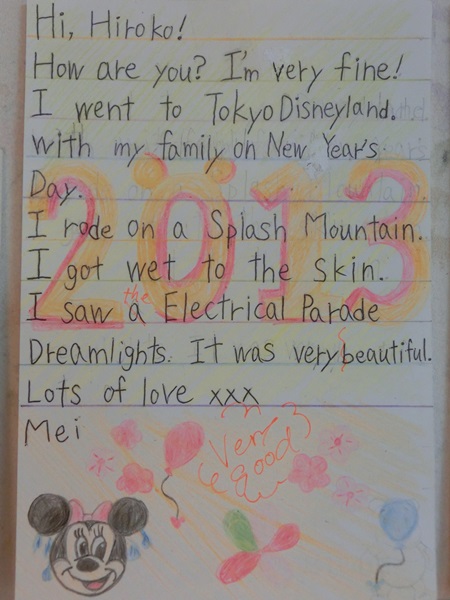 Hi, Hiroko!
How are you? I'm very fine!
I went to Tokyo Disneyland.
with my family on New Year's
Day.
2013
I rode on a Splash Mountain.
I got wet to the skin.
the
I saw a Electrical Parade
Dreamlights. It was very beautiful.
Lots of love xxx
Mei
Very
good